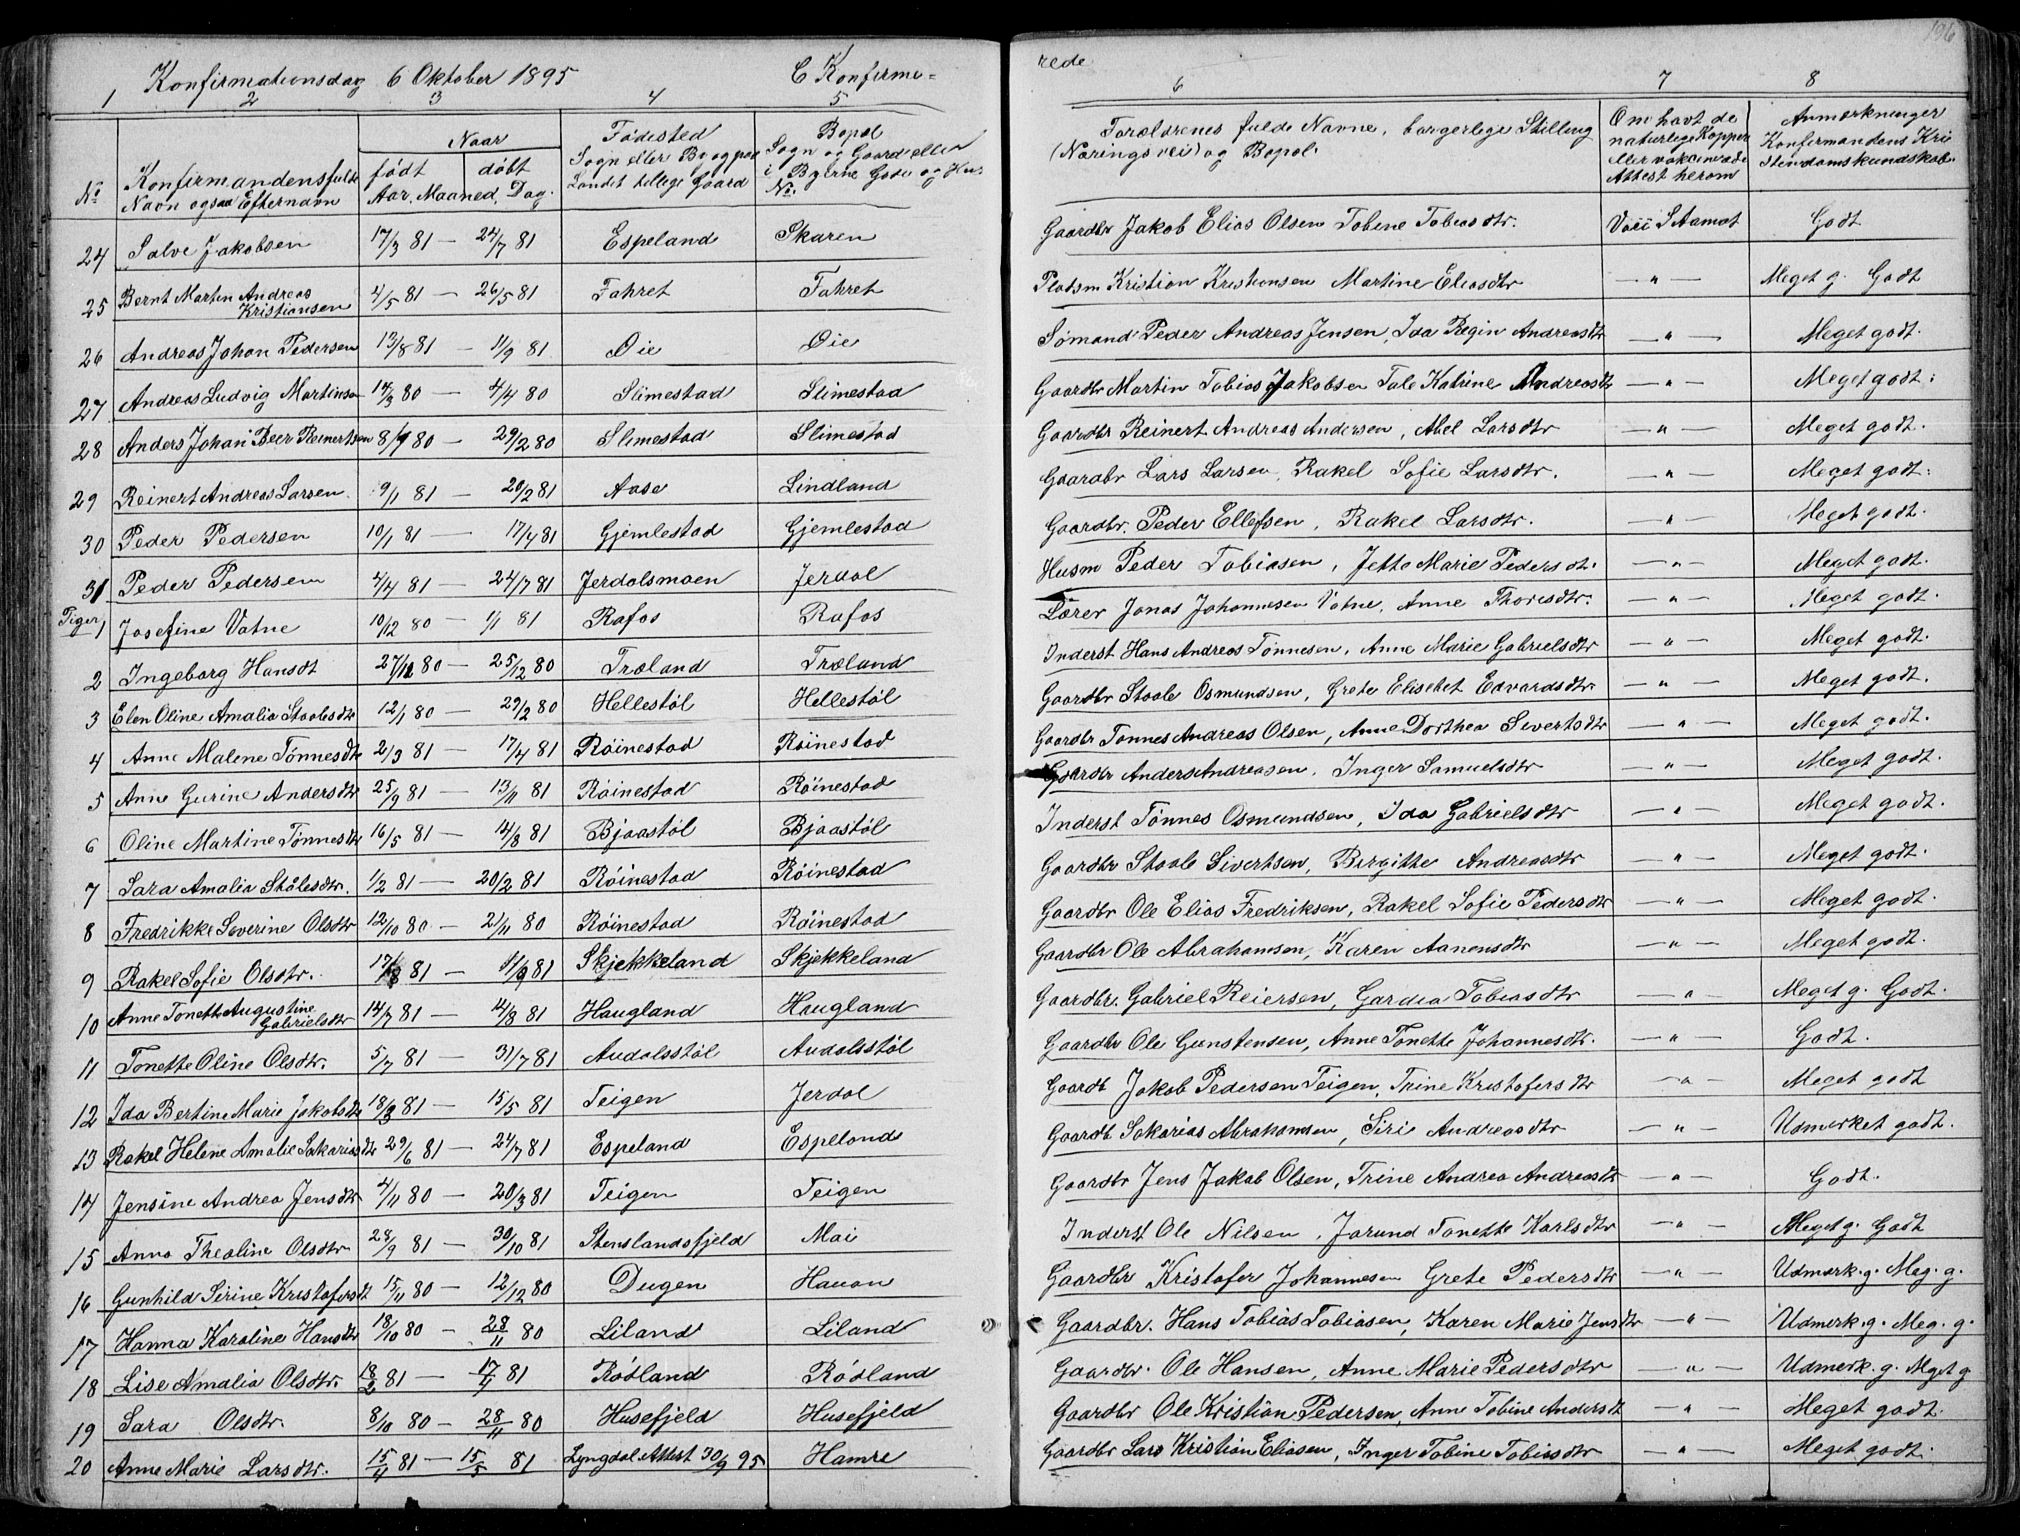 Konfirmationsdag 6 Oktober 1895 C Konfirme=
1 2 3 4 5
No Konfirmandens fulde Navn ogsaa Efternavn
Naar
født døbt
Aar, Maaned, Dag.
Fødested
Sogn eller By og paa
Landet tillige Gaard
Bopæl
Sogn og Gaard eller
i Byerne Gade og Hus
No.
24 Salve Jakobsen 17/3 81 — 24/7 81 Espeland Skaren
25 Bernt Martin Andreas Kristiansen 4/5 81 — 26/5 81 Fahret Fahret
26 Andreas Johan Pedersen 13/8 81 — 11/9 81 Øie Øie
27 Andreas Ludvig Martinsen 14/3 80 — 4/4 80 Slimestad Slimestad
28 Anders Johan Beer Reinertsen 8/1 80 — 29/2 80 Slimestad Slimestad
29 Reinert Andreas Larsen 9/1 81 — 20/2 81 Aase Lindland
30 Peder Pedersen 10/1 81 — 17/4 81 Gjemlestad Gjemlestad
31 Peder Pedersen 4/4 81 — 24/7 81 Jerdalsmoen Jerdal
Piger
1 Josefine Vatne 10/12 80 — 1/1 81 Rafos Rafos
2 Ingeborg Hansdt 27/11 80 — 25/12 80 Træland Træland
3 Elen Oline Amalia Staalesdtr 12/1 80 — 29/2 80 Hellestøl Hellestøl
4 Anne Malene Tønnesdtr 2/3 81 — 17/4 81 Røinestad Røinestad
5 Anne Gurine Andersdtr 25/9 81 — 13/11 81 Røinestad Røinestad
6 Oline Martine Tønnesdtr 16/5 81 — 14/8 81 Bjaastøl Bjaastøl
7 Sara Amalia Stålesdtr. 1/2 81 — 20/2 81 Røinestad Røinestad
8 Fredrikke Severine Olsdtr 12/10 80 — 21/11 80 Røinestad Røinestad
9 Rakel Sofie Olsdtr. 17/8 81 — 11/9 81 Skjekkeland Skjekkeland
10 Anne Tonette Augustine Gabrielsdtr 14/7 81 — 14/8 81 Haugland Haugland
11 Tonette Oline Olsdtr. 5/7 81 — 31/7 81 Audalsstøl Audalsstøl
12 Ida Bertine Marie Jakobsdtr 18/3 81 — 15/5 81 Teigen Jerdal
13 Rakel Helene Amalie Sakariasdtr 29/6 81 — 24/7 81 Espeland Espeland
14 Jensine Andrea Jensdtr 4/11 80 — 20/3 81 Teigen Teigen
15 Anna Thealine Olsdtr 28/9 81 — 30/10 81 Stenslandsfjeld Mai
16 Gunhild Sirine Kristofersdt 15/11 80 — 12/12 80 Dugen Hauan
17 Hanna Karoline Hansdtr 18/10 80 — 28/11 80 Liland Liland
18 Lise Amalia Olsdtr. 18/2 81 — 17/4 81 Rødland Rødland
19 Sara Olsdtr. 8/10 80 — 28/11 80 Husefjeld Husefjeld
20 Anne Marie Larsdtr. 15/4 81 — 15/5 81 Lyngdal Attest 30/9 95 Hamre
rede 196
6 7 8
Forældrenes fulde Navne, borgerlige Stilling
(Næringsvei) og Bopæl.
Om havt de
naturlige Kopper
eller vakcinerede
Attest herom
Anmærkninger
Konfirmandens Kri
stendomskundskab.
Gaardbr Jakob Elias Olsen Tobine Tobiasdtr. Vacc Godt
Pladsm Kristian Kristiansen Martine Eliasdtr — " — Meget g. Godt
Sømand Peder Andreas Jensen, Ida Regin Andreasdtr — " — Meget godt.
Gaardbr Martin Tobias Jakobsen Tale Katrine Andreasdtr — " — Meget godt.
Gaardbr Reinert Andreas Andersen, Abel Larsdtr — " — Meget godt.
Gaardbr Lars Larsen, Rakel Sofie Larsdtr. — " — Meget godt.
Gaardbr. Peder Ellefsen, Rakel Larsdtr. — " — Meget godt.
Husm Peder Tobiasen, Jette Marie Pedersdt. — " — Meget godt.
Lærer Jonas Johannesen Vatne, Anne Thoresdtr. — " — Meget godt.
Inderst Hans Andreas Tønnesen, Anne Marie Gabrielsdtr — " — Meget godt.
Gaardbr Staale Osmundsen, Grete Elisebet Edvardsdtr — " — Meget godt.
Gaardbr Tønnes Andreas Olsen, Anne Dorthea Sivertsdtr — " — Meget godt.
Gaardbr Anders Andreasen, Inger Samuelsdtr — " — Meget godt.
Inderst Tønnes Osmundsen, Ida Gabrielsdtr — " — Meget godt.
Gaardbr Staale Sivertsen, Birgitte Andreasdtr — " — Meget godt.
Gaardbr Ole Elias Fredriksen, Rakel Sofie Pedersdtr — " — Meget godt.
Gaardbr Ole Abrahamsen, Karen Aanensdtr — " — Meget godt.
Gaardbr. Gabriel Reiersen, Gardia Tobiasdtr — " — Meget g. Godt.
Gaardbr Ole Gunstensen, Anne Tonette Johannesdtr. — " — Godt.
Gaardb Jakob Pedersen Teigen, Trine Kristofersdtr — " — Meget godt
Gaardb Sakarias Abrahamsen, Siri Andreasdtr — " — Udmerket godt.
Gaardbr Jens Jakob Olsen, Trine Andrea Andreasdtr — " — Godt.
Inderst Ole Nilsen, Jorund Tonette Karlsdtr — " — Meget g. Godt
Gaardbr Kristofer Johannesen Grete Pedersdtr — " — Udmerk. g. Meg. g.
Gaardbr. Hans Tobias Tobiasen, Karen Marie Jensdtr — " — Udmerk. g. Meg. g.
Gaardbr. Ole Hansen, Anne Marie Pedersdtr — " — Udmerk. g. Meget g
Gaardbr Ole Kristian Pedersen, Anne Tobine Andersdt — " — Meget godt.
Gaardbr Lars Kristian Eliasen, Inger Tobine Tobiasdtr — " — Meget godt.